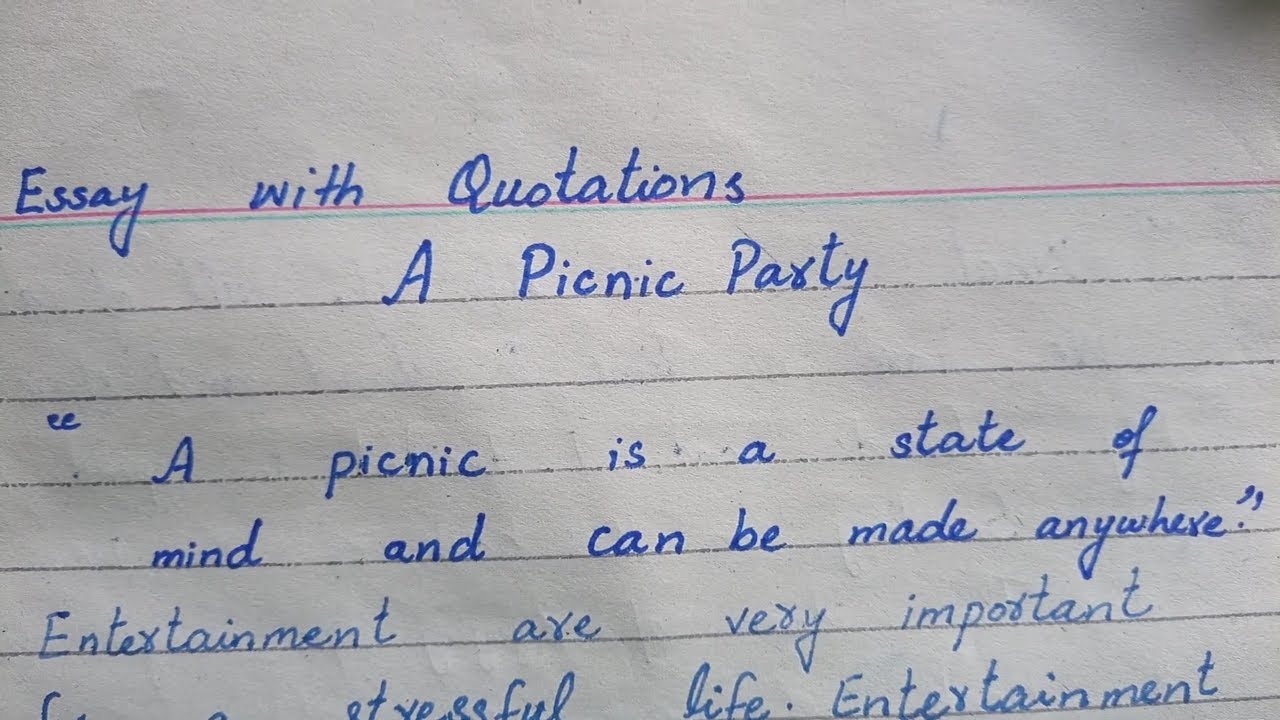 Essay with Quotations
A Picnic Party
“ A picnic is a state of
mind and can be made anywhere.”
Entertainment are very important
stressful life. Entertainment